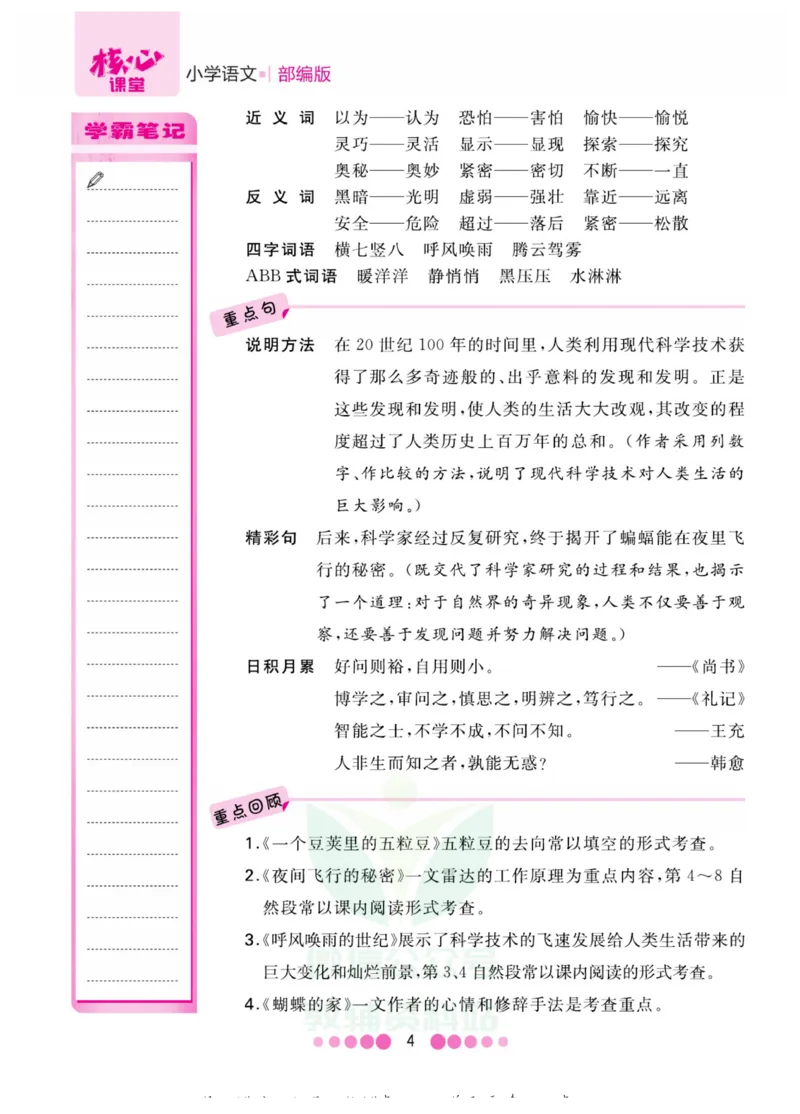 核心
课堂
小学语文 | 部编版
学霸笔记
近义词 以为——认为 恐怕——害怕 愉快——愉悦
灵巧——灵活 显示——显现 探索——探究
奥秘——奥妙 紧密——密切 不断——一直
反义词 黑暗——光明 虚弱——强壮 靠近——远离
安全——危险 超过——落后 紧密——松散
四字词语 横七竖八 呼风唤雨 腾云驾雾
ABB式词语 暖洋洋 静悄悄 黑压压 水淋淋
重点句
说明方法 在20世纪100年的时间里,人类利用现代科学技术获
得了那么多奇迹般的、出乎意料的发现和发明。正是
这些发现和发明,使人类的生活大大改观,其改变的程
度超过了人类历史上百万年的总和。(作者采用列数
字、作比较的方法,说明了现代科学技术对人类生活的
巨大影响。)
精彩句 后来,科学家经过反复研究,终于揭开了蝙蝠能在夜里飞
行的秘密。(既交代了科学家研究的过程和结果,也揭示
了一个道理:对于自然界的奇异现象,人类不仅要善于观
察,还要善于发现问题并努力解决问题。)
日积月累 好问则裕,自用则小。 ——《尚书》
博学之,审问之,慎思之,明辨之,笃行之。——《礼记》
智能之士,不学不成,不问不知。 ——王充
人非生而知之者,孰能无惑? ——韩愈
重点回顾
1.《一个豆荚里的五粒豆》五粒豆的去向常以填空的形式考查。
2.《夜间飞行的秘密》一文雷达的工作原理为重点内容,第4～8自
然段常以课内阅读形式考查。
3.《呼风唤雨的世纪》展示了科学技术的飞速发展给人类生活带来的
巨大变化和灿烂前景,第3、4自然段常以课内阅读的形式考查。
4.《蝴蝶的家》一文作者的心情和修辞手法是考查重点。
教辅资料站
4